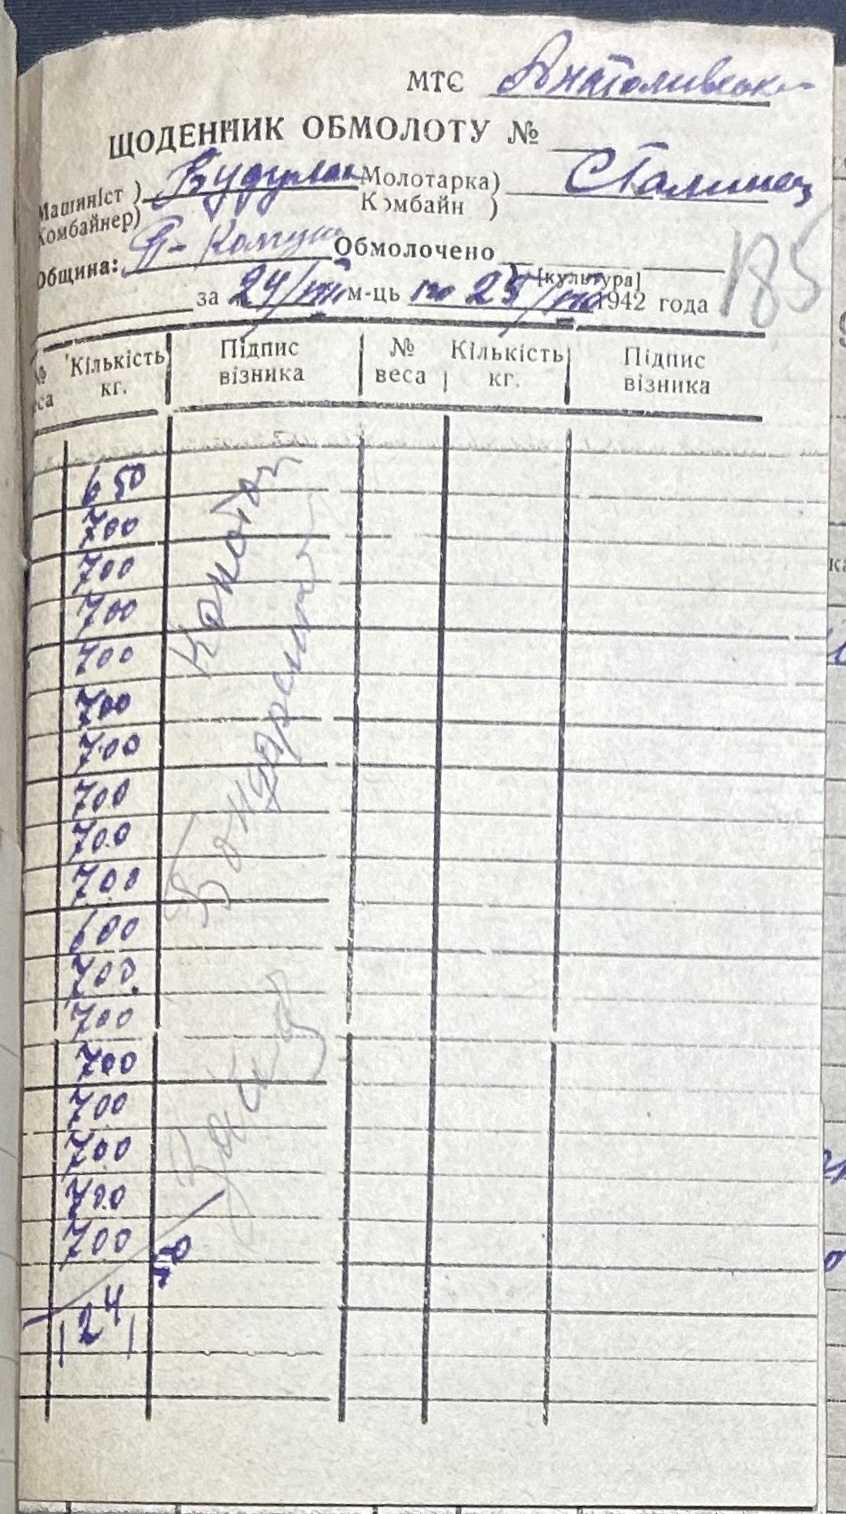 МТЄ Анатоливськ
ЩОДЕННИК ОБМОЛОТУ №
Машиніст ) Молотарка) Сталинец
Комбайнер) Комбайн )
Община: Обмолочено
[культура]
за 24/VIII м-ць по 25/VIII 1942 года
185
№ веса Кількість кг. Підпис візника № веса Кількість кг. Підпис візника
650
700
700
700
700
700
700
700
700
700
600
700
700
700
700
700
700
700
Бондаренко
Заяц
124 50